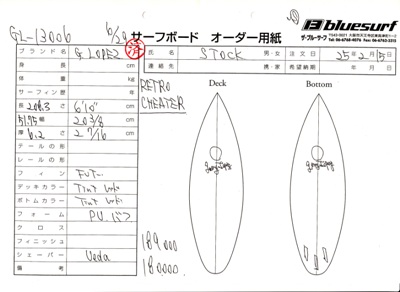 GL-13006
6/20
サーフボード オーダー用紙
bluesurf
ザ・ブルーサーフ
Tel 06-6768-9076 / Fax 06-6763-5315
ブランド名 G LOPEZ 済
氏名 STOCK
男・女
注文日 25年2月15日
身長 cm
連絡先
携・家
希望納期 年 月 日
体重 kg
サーフィン歴 年
長さ 208.3 cm 6'10"
51.75 幅 cm 20 3/8
厚さ 6.2 cm 2 7/16
テールの形
レールの形
フィン FUT-
デッキカラー Tint
ボトムカラー Tint
フォーム P.U.
クロス
フィニッシュ
シェーパー Ueda
備考
RETRO
CHEATER
189,000
180,000
Deck
Bottom